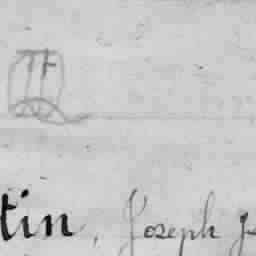 TF
tin, Joseph